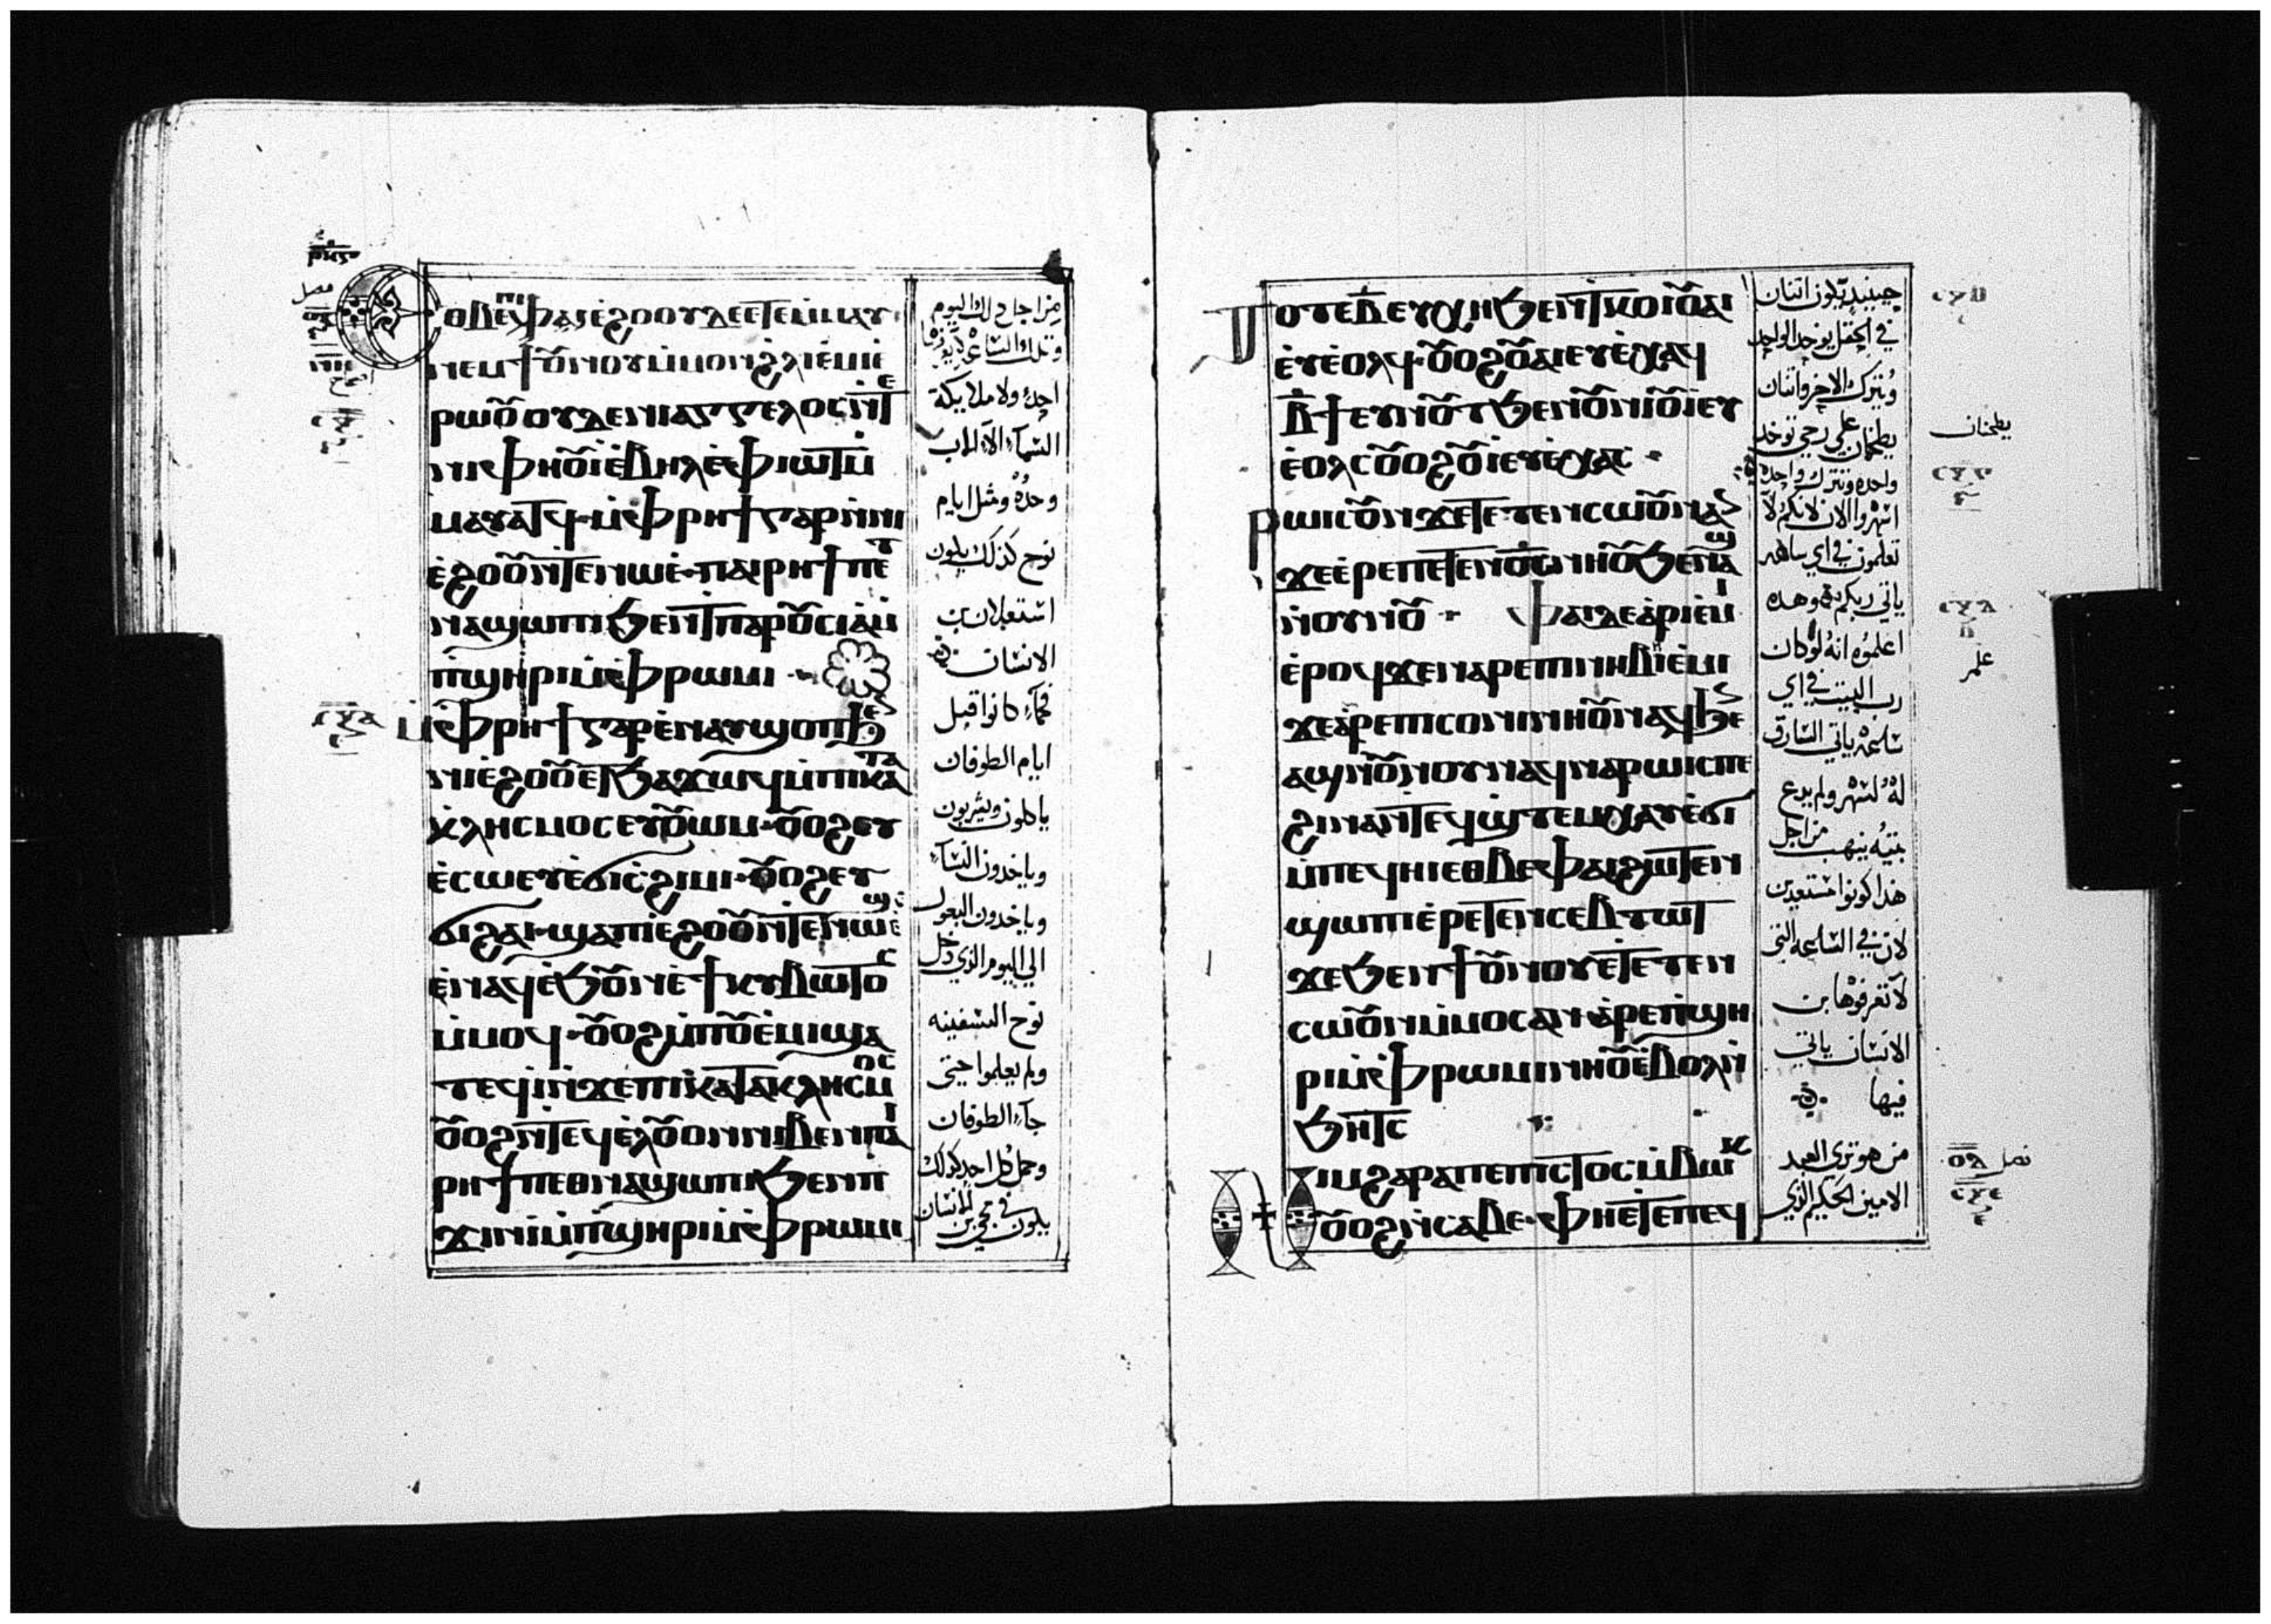 Ⲉⲑⲃⲉⲫⲁⲓⲉ̀ϩⲟⲟⲩⲇⲉⲉⲧⲉⲙⲙⲁⲩ
ⲛⲉⲙϯⲟⲩⲛⲟⲩⲙ̀ⲙⲟⲛϩⲗⲓⲉ̀ⲙⲓⲉ̀
ⲣⲱⲟⲩⲟⲩⲇⲉⲛⲓⲁⲅⲅⲉⲗⲟⲥⲛ̀ⲧⲉ
ⲛⲓⲫⲏⲟⲩⲓⲉ̀ⲃⲏⲗⲉ̀ⲫⲓⲱⲧⲙ̀
ⲙⲁⲩⲁⲧϥ·ⲙ̀ⲫⲣⲏϯⲅⲁⲣⲛ̀ⲛⲓ
ⲉ̀ϩⲟⲟⲩⲛ̀ⲧⲉⲛⲱⲉ̀·ⲡⲁⲓⲣⲏϯⲡⲉⲧ
ⲛⲁϣⲱⲡⲓϧⲉⲛⲧⲡⲁⲣⲟⲩⲥⲓⲁⲙ̀
ⲡ̀ϣⲏⲣⲓⲙ̀ⲫⲣⲱⲙⲓ
ⲙ̀ⲫⲣⲏϯⲅⲁⲣⲉ̀ⲛⲁⲩϣⲟⲡϧⲉⲛ
ⲛⲓⲉ̀ϩⲟⲟⲩⲉⲧϧⲁϫⲱϥⲙ̀ⲡⲓⲕⲁⲧⲁ
ⲕ̀ⲗⲏⲥⲙⲟⲥⲉⲩⲟⲩⲱⲙ·ⲟⲩⲟϩⲉⲩ
ⲉ̀ⲥⲱⲉⲩϭⲓⲥ̀ϩⲓⲙⲓ·ⲟⲩⲟϩⲉⲩ
ϭⲓϩⲁⲓ·ϣⲁⲡⲓⲉ̀ϩⲟⲟⲩⲛ̀ⲧⲉⲛⲱⲉ̀ϣ
ⲉ̀ⲛⲁϥⲉ̀ϧⲟⲩⲛⲉ̀ϯⲕⲩⲃⲱⲧⲟⲥ
ⲙ̀ⲙⲟϥ·ⲟⲩⲟϩⲙ̀ⲡⲟⲩⲉ̀ⲙⲓϣⲁ
ⲧⲉϥⲓ̀ⲛ̀ϫⲉⲡⲓⲕⲁⲧⲁⲕⲗⲏⲥⲙⲟⲥ
ⲟⲩⲟϩⲛ̀ⲧⲉϥⲉⲗⲟⲩⲟⲛⲛⲓⲃⲉⲛⲡⲁⲓ
ⲣⲏϯⲡⲉⲑⲛⲁϣⲱⲡⲓϧⲉⲛⲡ
ϫⲓⲛⲓ̀ⲙ̀ⲡ̀ϣⲏⲣⲓⲙ̀ⲫⲣⲱⲙⲓ
من اجل ذلك اليوم
وتلك الساعة لا يعرفها
احد ولا ملايكة
السماء الا الاب
وحده ومثل ايام
نوح كذلك يكون
استعلان بن
الانسان
كما كانوا قبل
ايام الطوفان
ياكلون ويشربون
وياخدون النساء
وياخدون البعول
الي اليوم الذي دخل
نوح السفينه
ولم يعلموا حتي
جاء الطوفان
وحمل كل احد كذلك
يكون في مجي بن الانسان
فصل
ⲣⲕⲋ
ⲥⲝⲁ
ⲧⲟⲧⲉⲃ̅ⲉⲩⲭⲏϧⲉⲛⲧⲕⲟⲓⲟⲩⲁⲓ
ⲉⲩⲉ̀ⲟⲗϥ·ⲟⲩⲟϩⲟⲩⲁⲓⲉⲩⲉ̀ⲭⲁϥ
ⲃ̅ϯⲉⲩⲛⲟⲩⲧϧⲉⲛⲟⲩⲛⲓⲟⲩⲓⲉⲩ
ⲉ̀ⲟⲗⲥⲟⲩⲟϩⲟⲩⲓⲉⲩⲉ̀ⲭⲁⲥ
ⲣⲱⲓⲥⲟⲩⲛϫⲉⲧⲉⲧⲉⲛⲥⲱⲟⲩⲛⲁⲛ
ϫⲉⲉ̀ⲣⲉⲡⲉⲧⲉⲛⲟⲥ̅ⲛⲏⲟⲩϧⲉⲛⲁϣ
ⲛ̀ⲟⲩⲛⲟⲩ Ⲫⲁⲓⲇⲉⲁ̀ⲣⲓⲉ̀ⲙⲓ
ⲉ̀ⲣⲟϥϫⲉⲛⲁⲣⲉⲡⲓⲛⲏⲃⲓⲉ̀ⲙⲓ
ϫⲉⲁ̀ⲣⲉⲡⲓⲥⲟⲛⲓⲛⲏⲟⲩⲛⲁϥϧⲉⲛ
ⲁϣⲛ̀ⲟⲩⲛⲟⲩⲛⲁϥⲛⲁⲣⲱⲓⲥⲡⲉ
ϩⲓⲛⲁⲛ̀ⲧⲉϥϣ̀ⲧⲉⲙⲭⲁⲩⲉ̀ϭⲓ
ⲙ̀ⲡⲉϥⲏⲓⲉⲑⲃⲉⲫⲁⲓϩⲱⲧⲉⲛ
ϣⲱⲡⲓⲉ̀ⲣⲉⲧⲉⲛⲥⲉⲃⲧⲱⲧ
ϫⲉϧⲉⲛϯⲟⲩⲛⲟⲩⲉⲧⲉⲧⲉⲛ
ⲥⲱⲟⲩⲛⲙ̀ⲙⲟⲥⲁⲛ·ⲁ̀ⲣⲉⲡ̀ϣⲏ
ⲣⲓⲙ̀ⲫⲣⲱⲙⲓⲛⲏⲟⲩⲉ̀ⲃⲟⲗⲛ̀
ϧⲏⲧⲥ
ⲛⲓⲙϩⲁⲣⲁⲡⲉⲡⲓⲥⲧⲟⲥⲙ̀ⲃⲱⲕ
ⲟⲩⲟϩⲛ̀ⲥⲁⲃⲉ·ⲫⲏⲉⲧⲉⲡⲉϥ
حينيد يكون اتنان
في الحقل يوخد الواحد
ويترك الاخر واتنان
يطحنان علي رحي توخد
واحده وتترك واحده
اسهروا الان لانكم لا
تعلمون في اي ساعه
ياتي ربكم وهده
اعلموه انه لو كان
رب البيت في اي
ساعه ياتي السارق
له لسهر ولم يدع
بيته ينهب من اجل
هذا كونوا مستعدين
لان في الساعه التي
لا تعرفوها بن
الانسان ياتي
فيها
من هو تري العبد
الامين الحكيم الذي
ⲥⲝⲃ
يطحنان
ⲥⲝⲅ
ⲥⲝⲇ
فصل
ⲥⲝⲉ